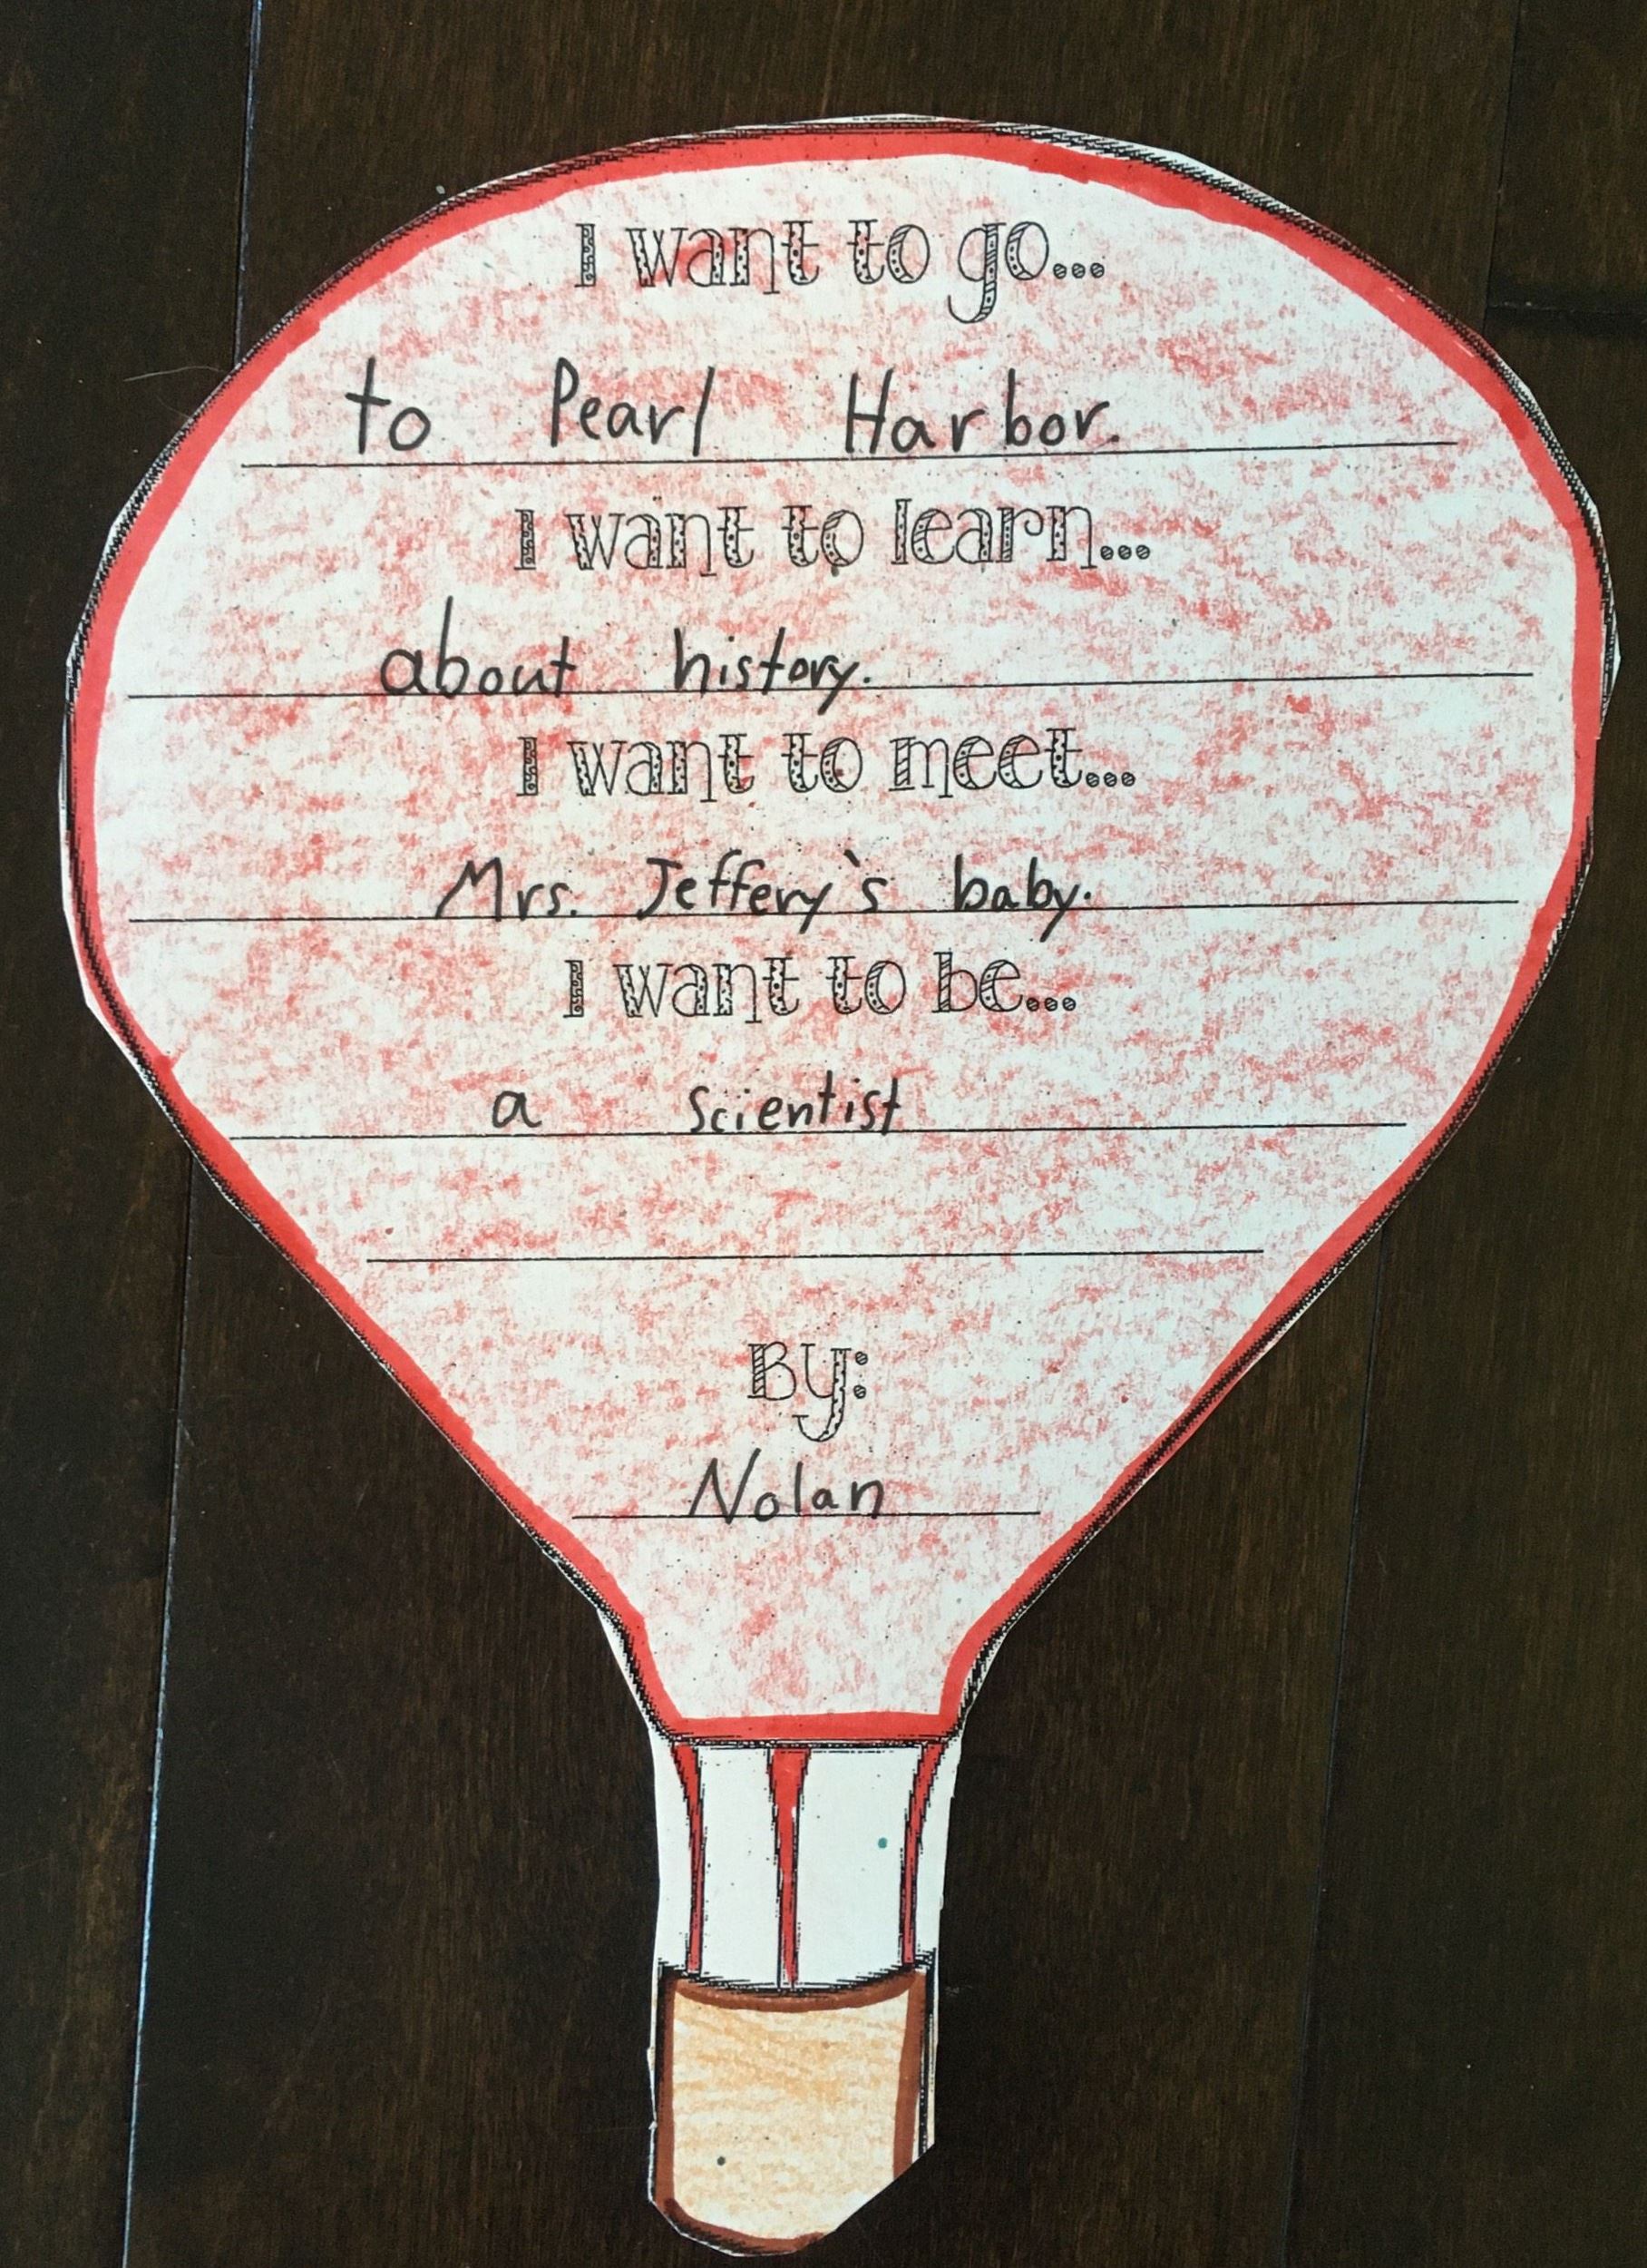 I want to go...
to Pearl Harbor.
I want to learn...
about history.
I want to meet...
Mrs. Jeffery's baby.
I want to be...
a scientist
By:
Nolan